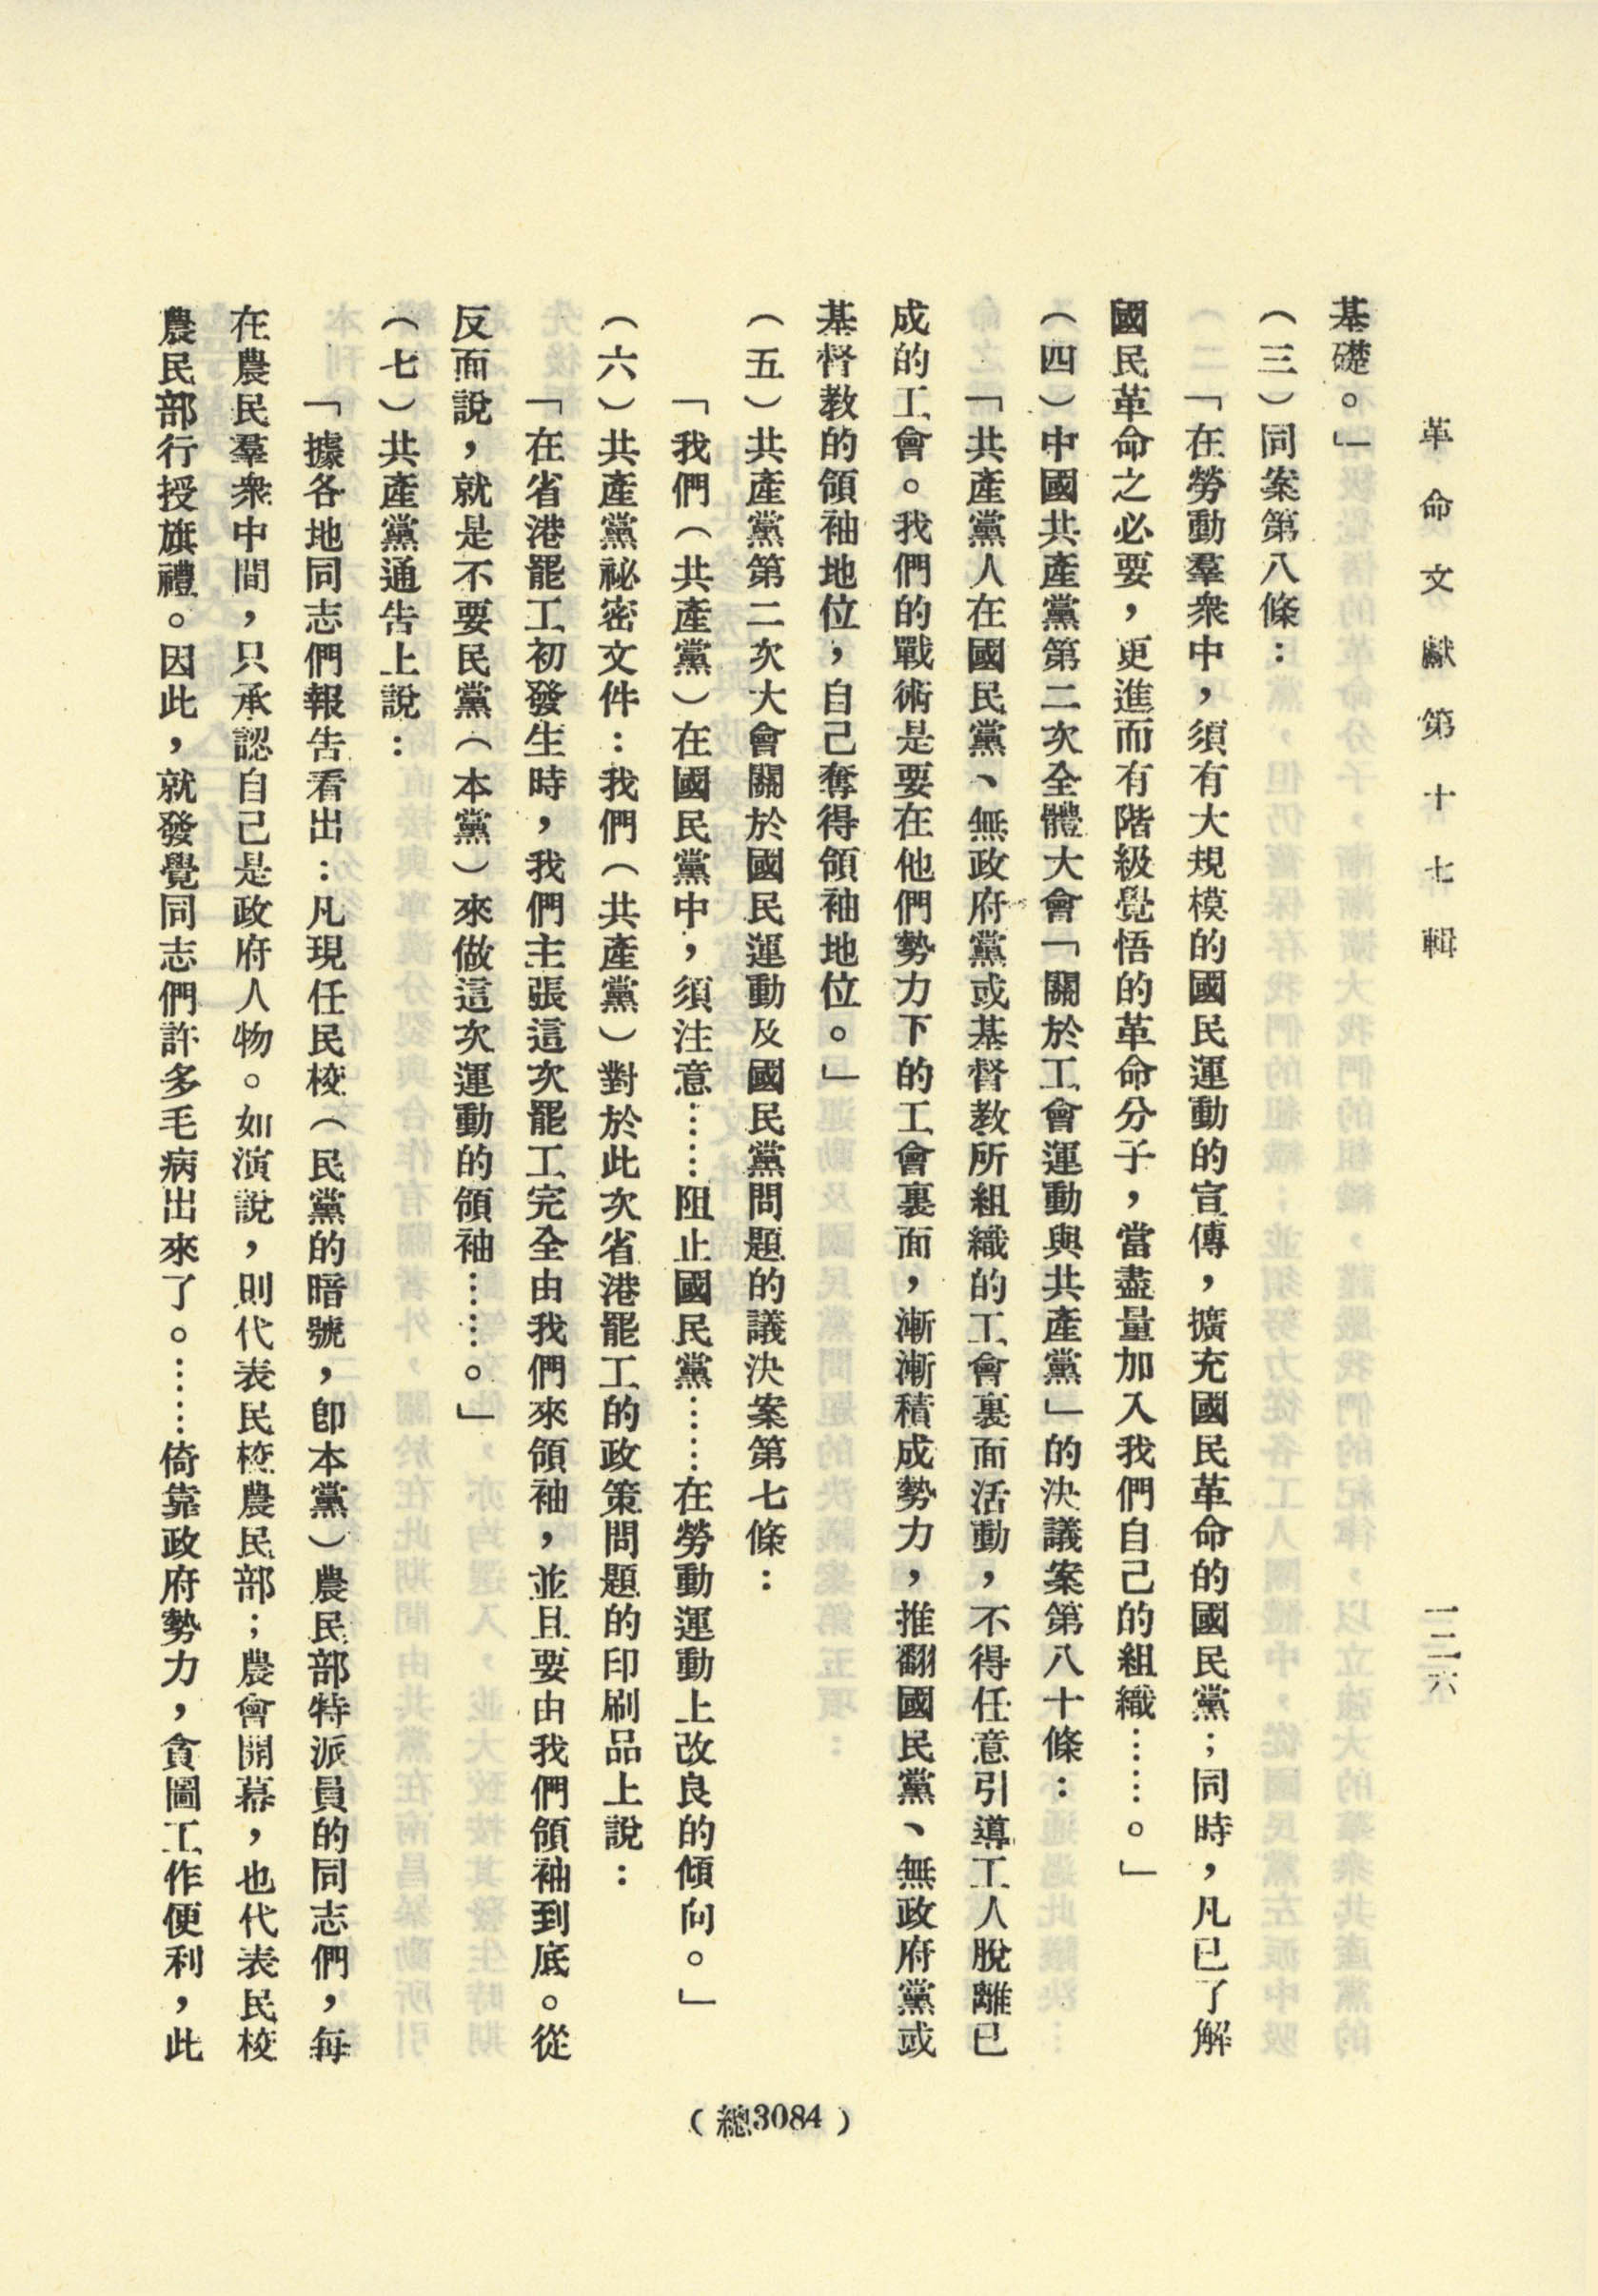 革命文獻第十七輯
一二六
基礎。」
（三）同案第八條：
「在勞動羣衆中，須有大規模的國民運動的宣傳，擴充國民革命的國民黨；同時，凡已了解
國民革命之必要，更進而有階級覺悟的革命分子，當盡量加入我們自己的組織……。」
（四）中國共產黨第二次全體大會「關於工會運動與共產黨」的決議案第八十條：
「共產黨人在國民黨、無政府黨或基督教所組織的工會裏面活動，不得任意引導工人脫離已
成的工會。我們的戰術是要在他們勢力下的工會裏面，漸漸積成勢力，推翻國民黨、無政府黨或
基督教的領袖地位，自己奪得領袖地位。」
（五）共產黨第二次大會關於國民運動及國民黨問題的議決案第七條：
「我們（共產黨）在國民黨中，須注意……阻止國民黨……在勞動運動上改良的傾向。」
（六）共產黨祕密文件：我們（共產黨）對於此次省港罷工的政策問題的印刷品上說：
「在省港罷工初發生時，我們主張這次罷工完全由我們來領袖，並且要由我們領袖到底。從
反面說，就是不要民黨（本黨）來做這次運動的領袖……。」
（七）共產黨通告上說：
「據各地同志們報告看出：凡現任民校（民黨的暗號，卽本黨）農民部特派員的同志們，每
在農民羣衆中間，只承認自己是政府人物。如演說，則代表民校農民部；農會開幕，也代表民校
農民部行授旗禮。因此，就發覺同志們許多毛病出來了。……倚靠政府勢力，貪圖工作便利，此
（總3084）